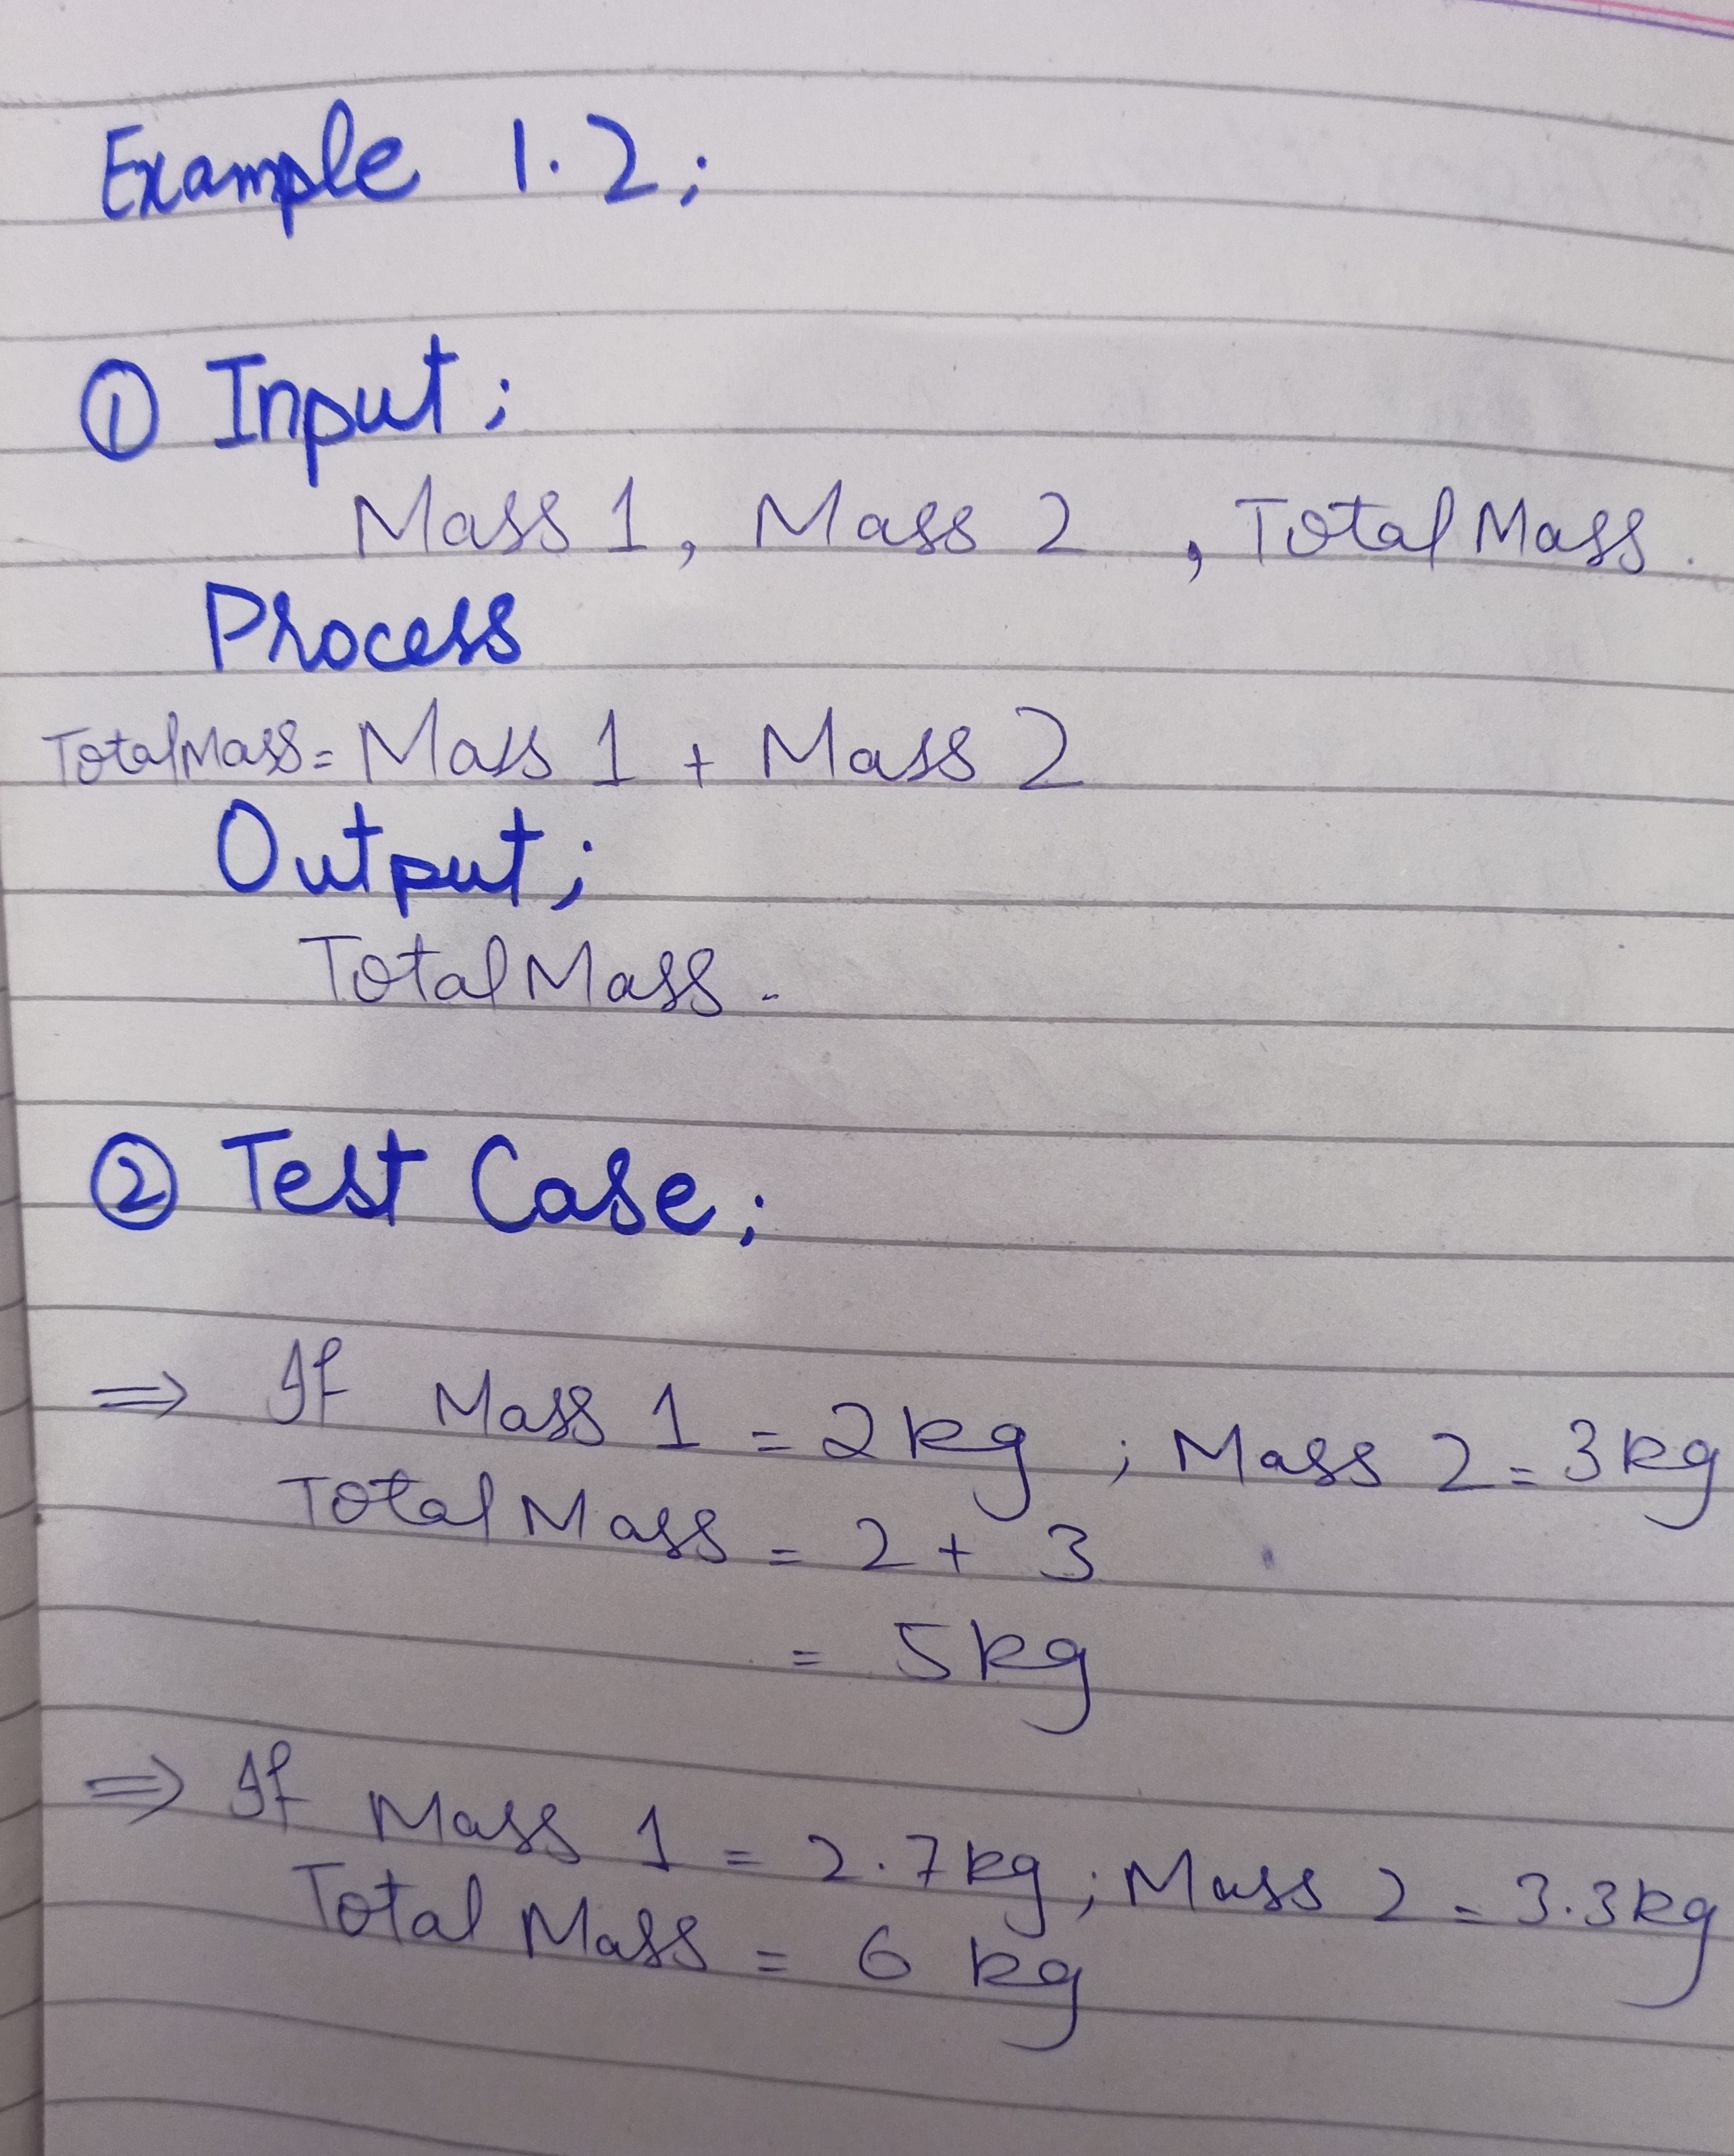 Example 1.2;
① Input;
Mass 1, Mass 2 , Total Mass.
Process
Total Mass = Mass 1 + Mass 2
Output;
Total Mass.
② Test Case;
⇒ If Mass 1 = 2kg ; Mass 2 = 3kg
Total Mass = 2 + 3
= 5kg
⇒ If Mass 1 = 2.7kg ; Mass 2 = 3.3kg
Total Mass = 6 kg